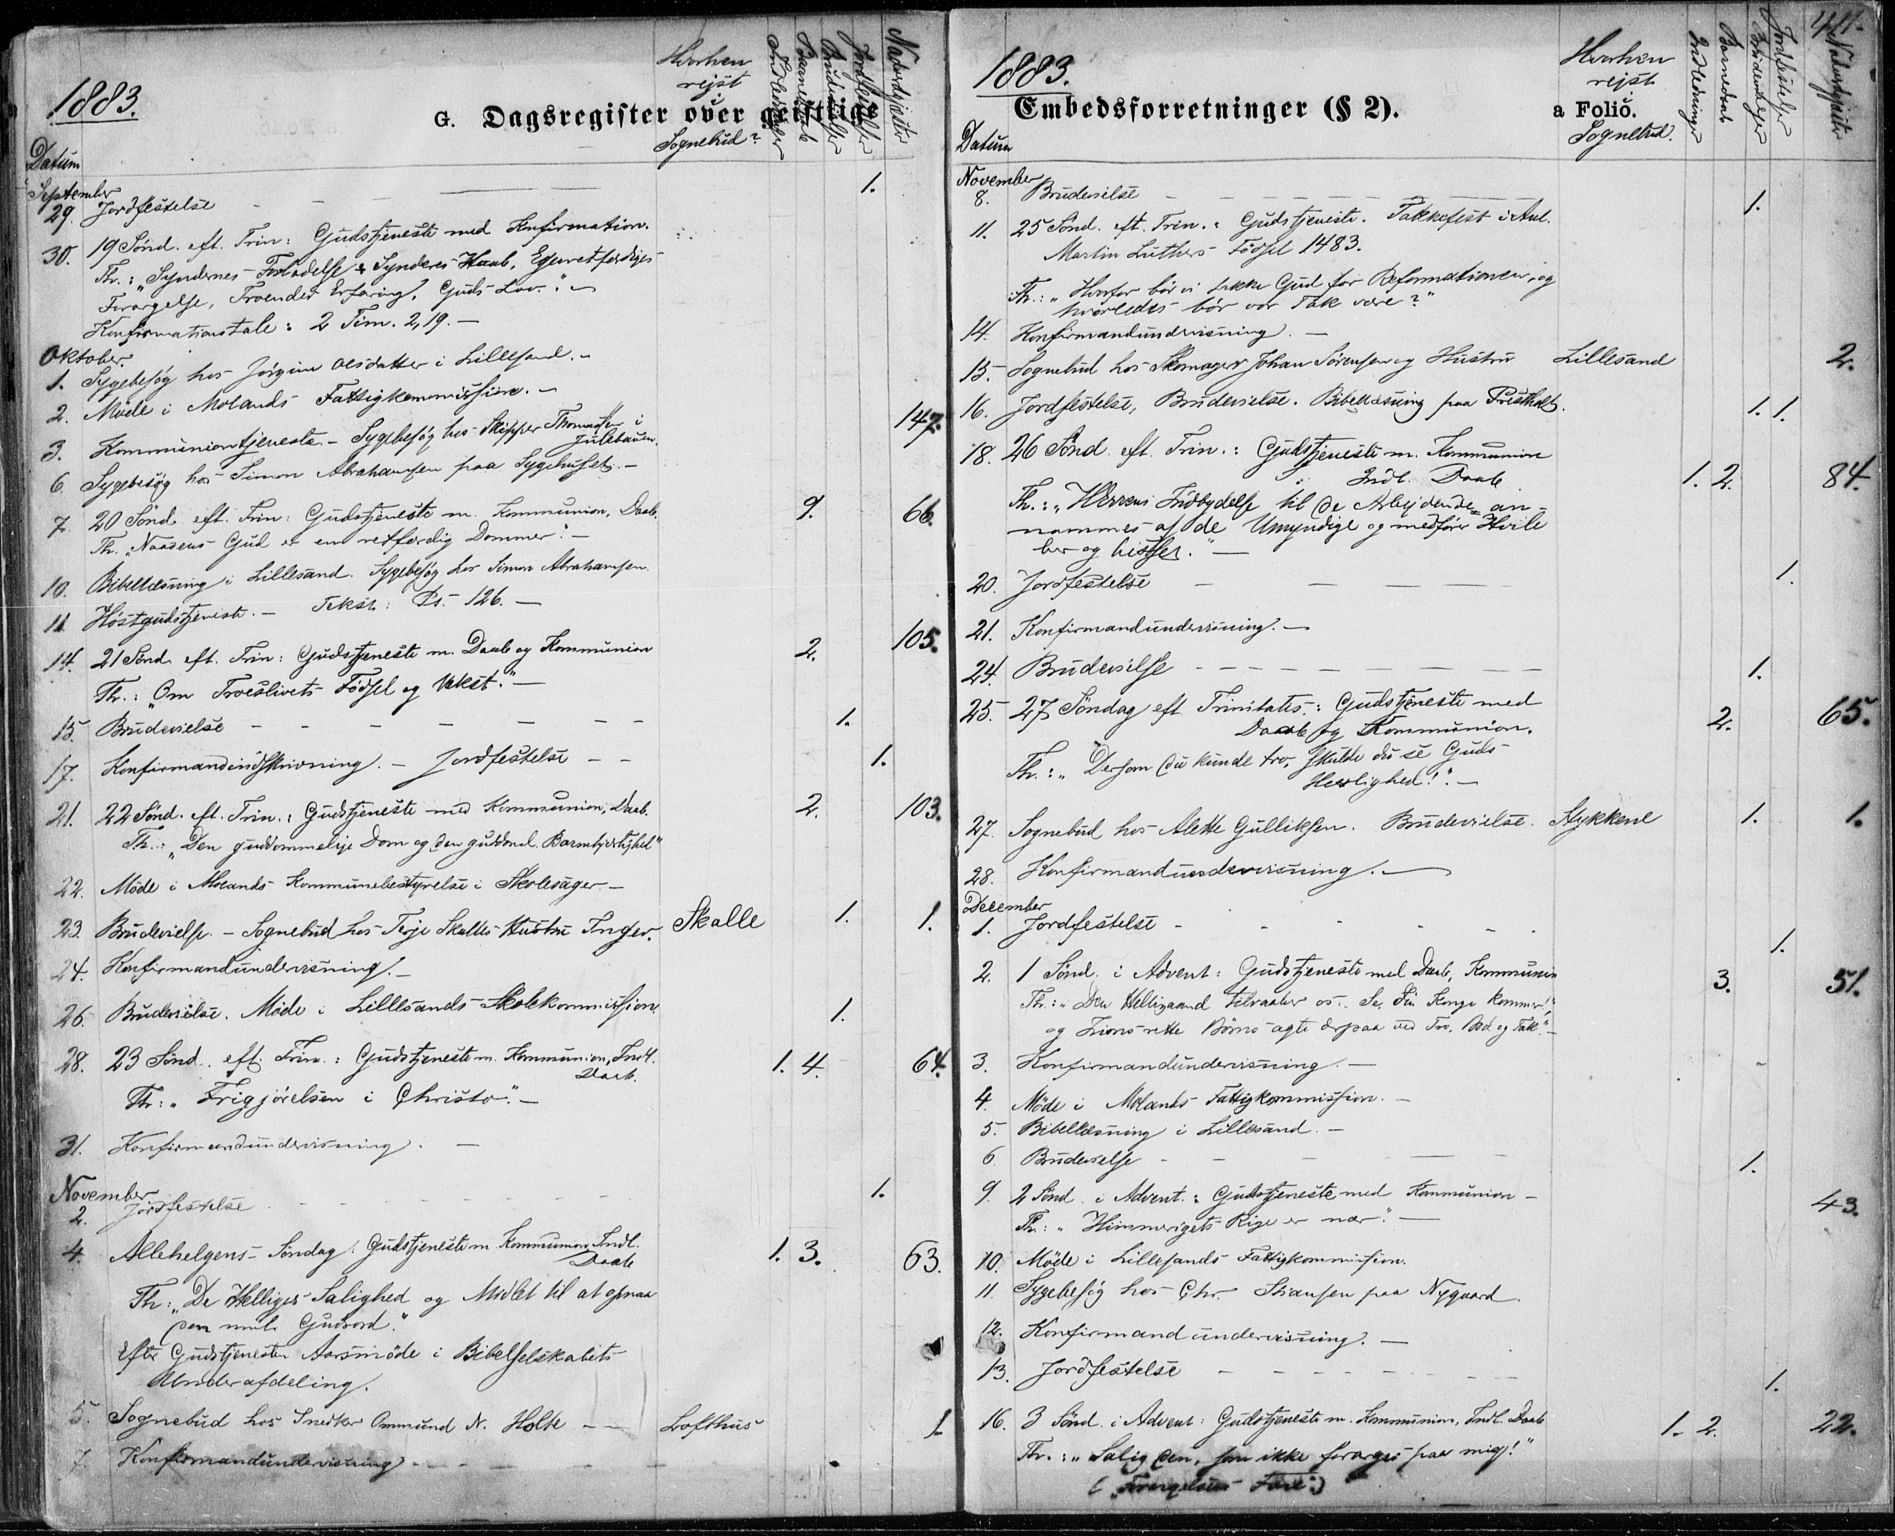 1883.
G. Dagsregister over geistlige
Hvorhen
rejst
i
Sognebud?
Indledninger
Barnedaab
Brudevielser
Jordfestelser
Nadverdgjester
Datum
September
29. Jordfestelse - - 1.
30. 19 Sønd. eft. Trin: Gudstjeneste med Konfirmation.
Th.: "Syndernes Forladelse: Synderes Haab, Egenretfærdiges
Forargelse, Troendes Erfaring, Guds Lov." -
Konfirmationstale: 2 Tim. 2,19. -
Oktober.
1. Sygebesøg hos Jørgine Olsdatter i Lillesand. -
2. Møde i Molands Fattigkommission. -
3. Kommuniontjeneste - Sygebesøg hos Skipper Thomassen i 147.
Julebauen.
6. Sygebesøg hos Simon Abrahamsen paa Sygehuset. -
7. 20 Sønd. eft. Trin: Gudstjeneste m. Kommunion, Daab. 9. 66.
Th. "Naadens Gud er en retfærdig Dommer". -
10. Bibellæsning i Lillesand. Sygebesøg hos Simon Abrahamsen.
11. Høstgudstjeneste. - Tekst: Ps. 126. -
14. 21 Sønd. eft. Trin: Gudstjeneste m. Daab og Kommunion 2. 105.
Th.: "Om Troeslivets Fødsel og Vækst." -
15. Brudevielse - - - - - - - 1.
17. Konfirmandindskrivning. - Jordfestelse - - 1.
21. 22 Sønd. eft. Trin.: Gudstjeneste med Kommunion, Daab. 2. 103.
Th.: "Den guddommelige Dom og den guddomel. Barmhjertighed"
22. Møde i Molands Kommunebestyrelse i Skolesager. -
23. Brudevielse. - Sognebud hos Terje Skalles Hustru Inger. Skalle 1. 1.
24. Konfirmandundervisning. -
26. Brudevielse. Møde i Lillesands Skolekommission. 1.
28. 23 Sønd. eft. Trin.: Gudstjeneste m. Kommunion, Indl. 1. 4. 64.
Daab.
Th.: "Frigjørelsen i Christo". -
31. Konfirmandundervisning. -
November
2. Jordfestelse - - - - - 1.
4. Allehelgens-Søndag: Gudstjeneste m. Kommunion, Indl. 1. 3. 63.
Daab
Th: "De Helliges Salighed og Midlet til at opnaa
den
Efter Gudstjenesten Aarsmøde i Bibelselskabets
Underafdeling.
5. Sognebud hos Snedker Ommund N. Holte - - Lofthus 1
7. Konfirmandundervisning - - - -
1883.
Embedsforretninger (§ 2).
a Folio.
Hvorhen
rejst
i
Sognebud.
Indledninger
Barnedaab
Brudevielser
Jordfestelser
Nadverdgjester
Datum
November
8. Brudevielse - - - - - 1.
11. 25 Sønd. eft. Trin.: Gudstjeneste. Takkefest i Anl.
Martin Luthers Fødsel 1483.
Th.: "Hvorfor bør vi takke Gud for Reformationen, og
hvorledes bør vor Tak være?"
14. Konfirmandundervisning. -
15. Sognebud hos Skomager Johan Sørensen og Hustru Lillesand 2.
16. Jordfestelse, Brudevielse. Bibellæsning paa Prestholt. 1. 1.
18. 26 Sønd. eft. Trin.: Gudstjeneste m. Kommunion
Indl. Daab 1. 2. 84.
Th.: "Herrens Indbydelse til de Arbejdende an-
nammes af de Umyndige og medfører Hvile
her og hisset." -
20. Jordfestelse - - - 1.
21. Konfirmandundervisning. -
24. Brudevielse - - - - - 1.
25. 27 Søndag eft. Trinitatis: Gudstjeneste med
Daab og Kommunion. 2. 65.
Th.: "Dersom du kunde tro, skulde du se Guds
Herlighed!". -
27. Sognebud hos Alette Gulliksen. Brudevielse. Aykkene 1. 1.
28. Konfirmandundervisning. -
December
1. Jordfestelse - - - 1.
2. 1 Sønd. i Advent: Gudstjeneste med Daab, Kommunion 3. 51.
Th.: "Den Helligaand tilraaber os: Se, din Konge kommer!"
og Zions rette Børns agte derpaa ved Tro, Bod og Tak." -
3. Konfirmandundervisning. -
4. Møde i Molands Fattigkommission. -
5. Bibellæsning i Lillesand. -
6. Brudevielse - - - - 1.
9. 2 Sønd. i Advent.: Gudstjeneste med Kommunion - 43.
Th.: "Himmeriges Rige er nær." -
10. Møde i Lillesands Fattigkommission.
11. Sygebesøg hos Chr. paa Nygaard.
12. Konfirmandundervisning. -
13. Jordfestelse - - - - 1.
16. 3 Sønd. i Advent: Gudstjeneste m. Kommunion, Indl. Daab 1. 2. 22.
Th.: "Salig den, som ikke forarges paa mig!"
(Forargelsens Fare.)